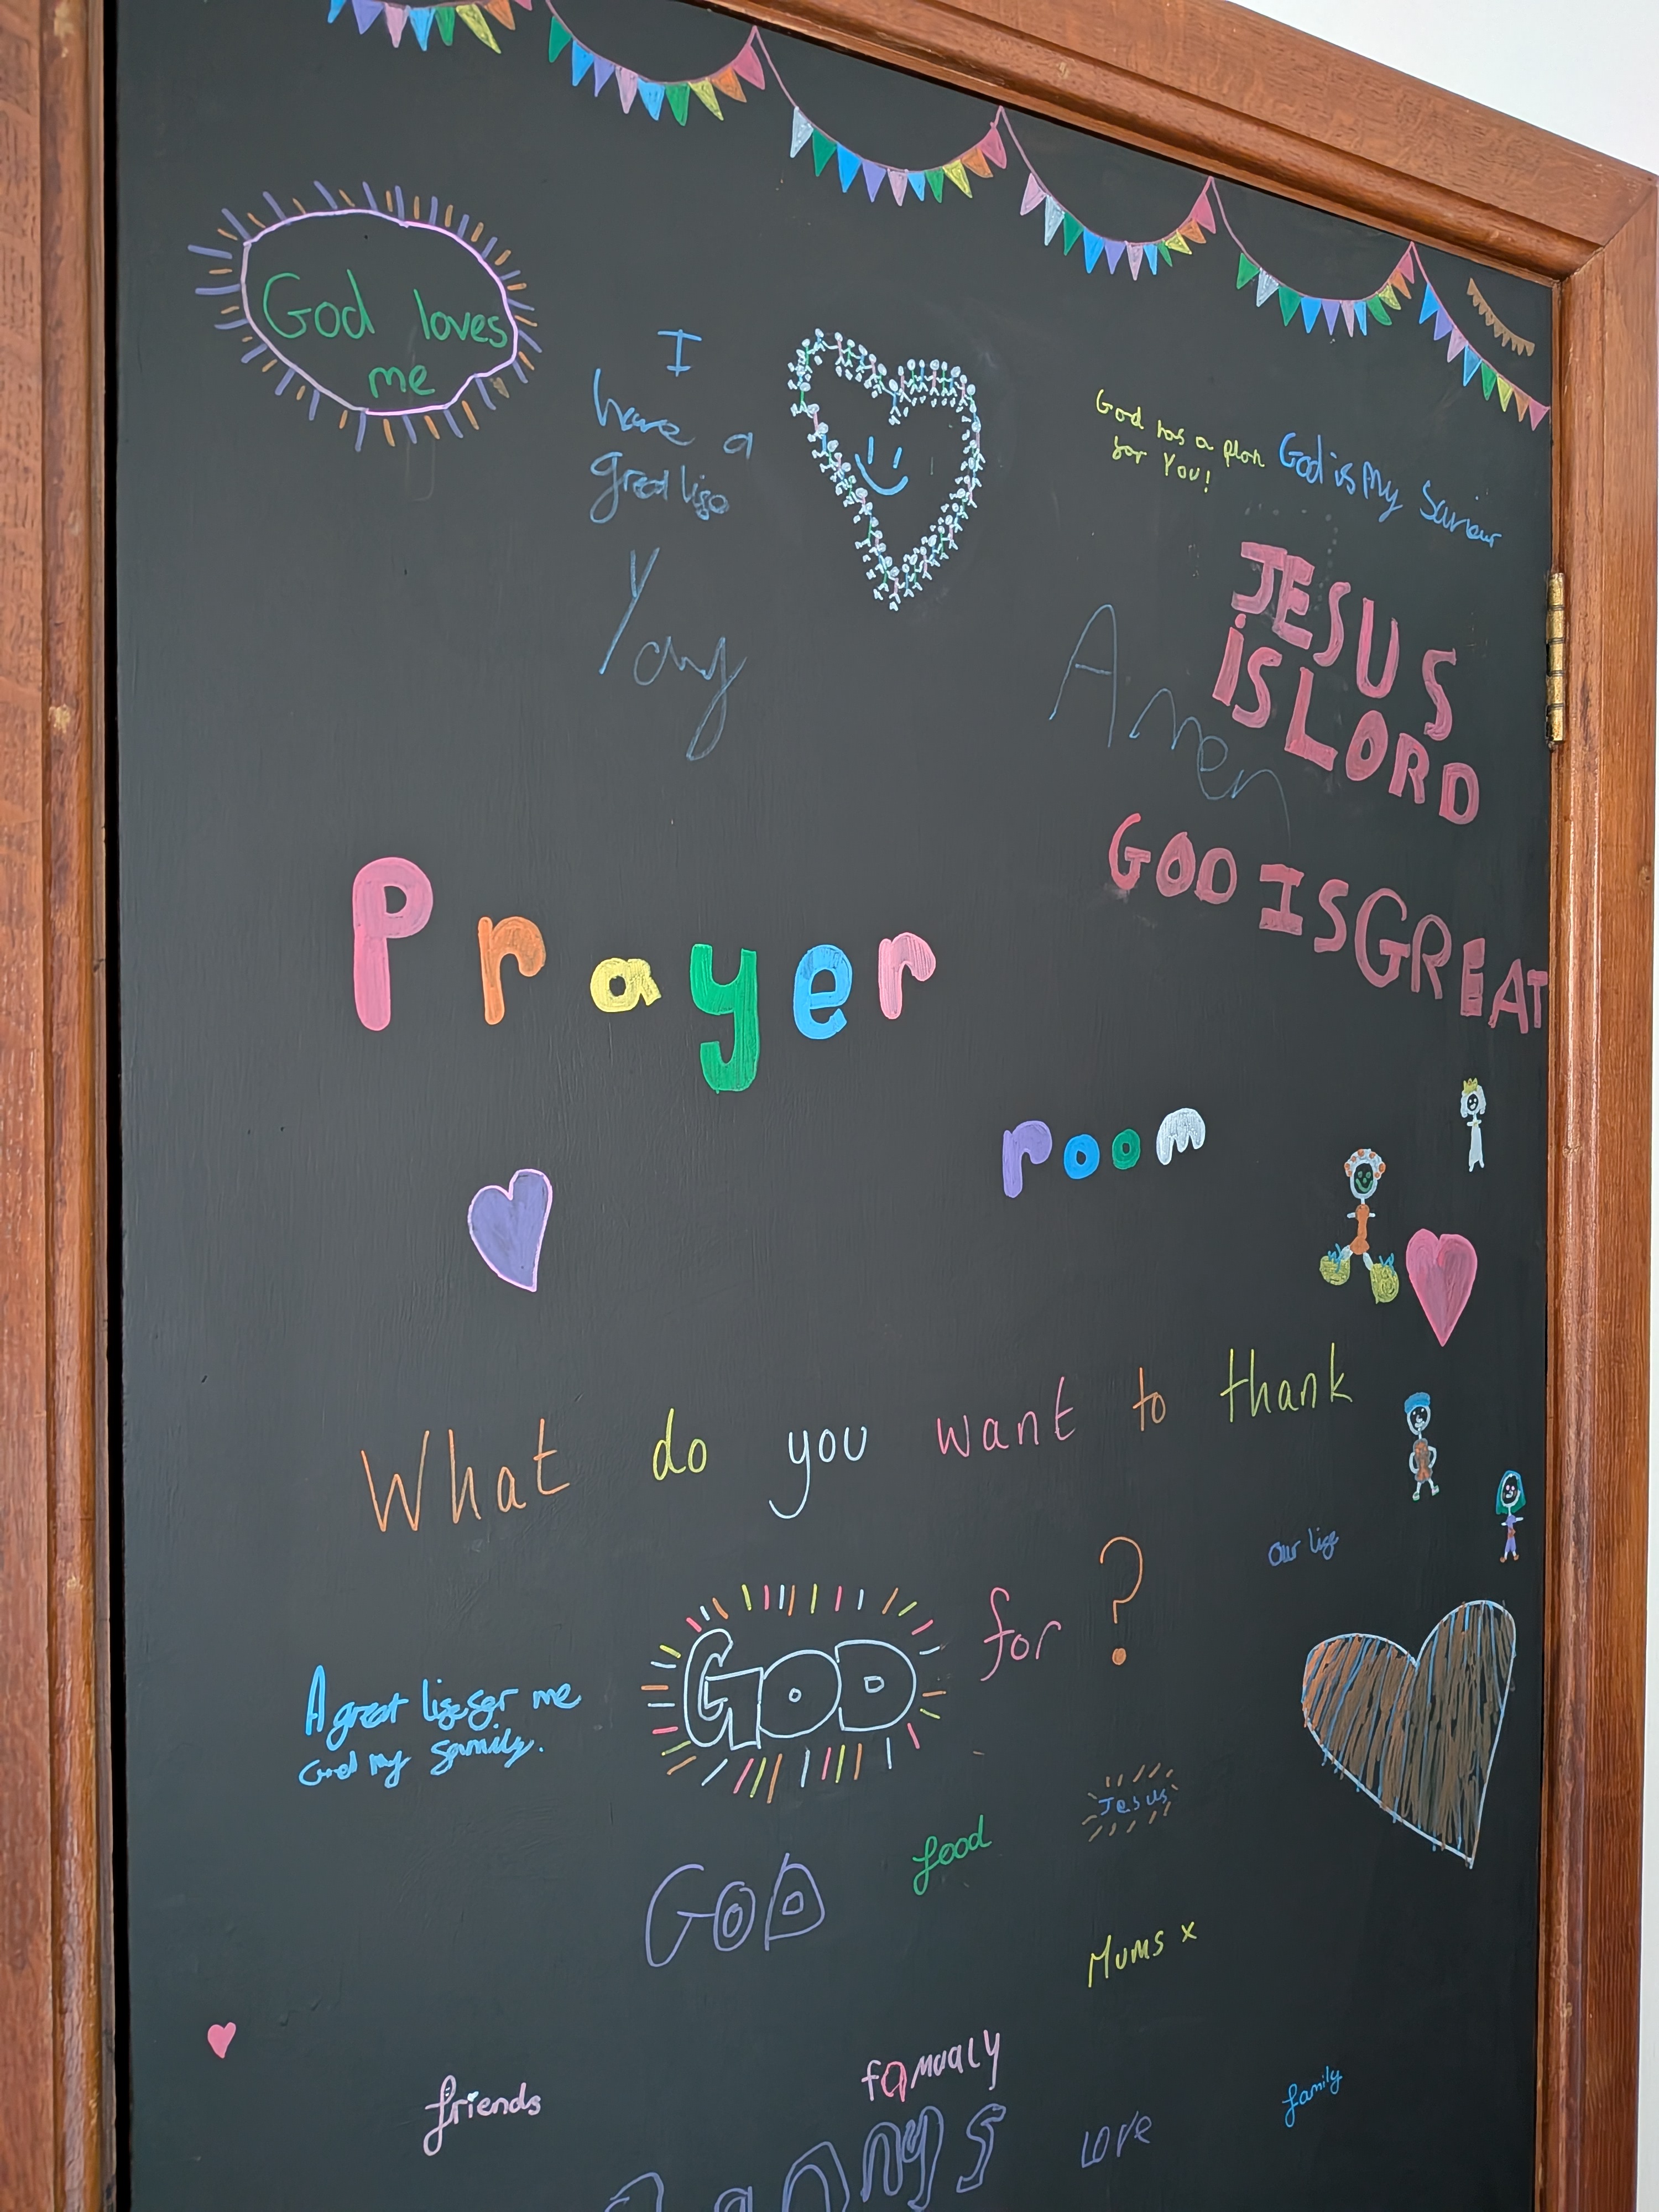 God loves
me
I
have a
great life
Yay
God has a plan
for You!
God is My Saviour
JESUS
iS LORD
Amen
GOD IS GREAT
Prayer
room
What do you want to thank
GOD for ?
Our life
A great life for me
and my family.
Jesus
food
GOD
Mums x
famualy
friends
family
LOVE